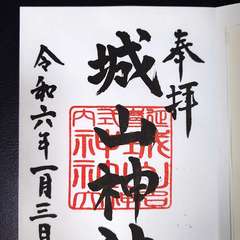 奉拝
城山神
令和六年一月三日